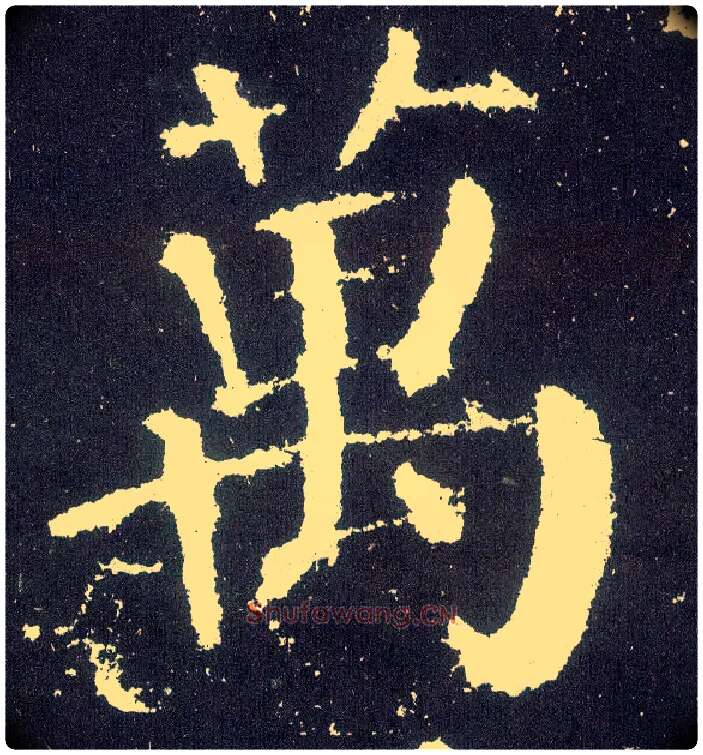 萬
Shufawang.CN